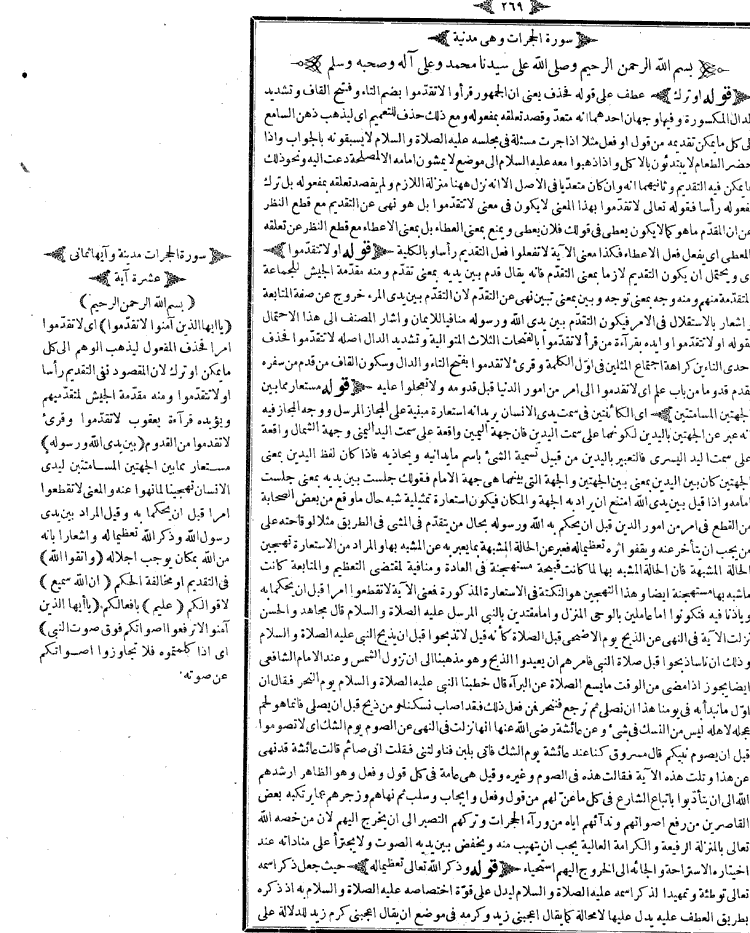 ٢٦٩
سورة الحجرات وهى مدنية
بسم الله الرحمن الرحيم وصلى الله على سيدنا محمد وعلى آله وصحبه وسلم
قوله او ترك عطف على قوله فحذف يعنى ان الجمهور قرأوا لا تقدموا بضم التاء وفتح القاف وتشديد
الدال المكسورة وفيها وجهان احدهما انه متعد وقصد تعلقه بمفعوله ومع ذلك حذف للتعميم اى ليذهب ذهن السامع
الى كل ما يمكن تقديمه من قول او فعل مثلا اذا جرت مسئلة فى مجلسه عليه الصلاة والسلام لا يسبقونه بالجواب واذا
حضر الطعام لا يبتدئون بالاكل واذا ذهبوا معه عليه السلام الى موضع لا يمشون امامه الا لمصلحة دعت اليه ونحو ذلك
مما يمكن فيه التقديم وثانيهما انه وان كان متعديا فى الاصل الا انه نزل ههنا منزلة اللازم ولم يقصد تعلقه بمفعوله بل ترك
مفعوله رأسا فقوله تعالى لا تقدموا بهذا المعنى لا يكون فى معنى لا تقدموا بل هو نهى عن التقديم مع قطع النظر
عن ان المقدم ما هو كما لا يكون يعطى فى قولك فلان يعطى ويمنع بمعنى العطاء بل بمعنى الاعطاء مع قطع النظر عن تعلقه
بالمعطى اى يفعل فعل الاعطاء فكذا معنى الآية لا تفعلوا فعل التقديم رأسا وبالكلية قوله او لا تتقدموا
اى ويحتمل ان يكون التقديم لازما بمعنى التقدم فانه يقال قدم بين يديه بمعنى تقدم ومنه مقدمة الجيش للجماعة
المتقدمة منهم ومنه وجه بمعنى توجه وبين بمعنى تبين نهى عن التقدم لان التقدم بين يدى المرء خروج عن صفة المتابعة
واشعار بالاستقلال فى الامر فيكون التقدم بين يدى الله ورسوله منافيا للايمان واشار المصنف الى هذا الاحتمال
بقوله او لا تتقدموا وايده بقرآءة من قرأ لا تقدموا بالفتحات الثلاث المتوالية وتشديد الدال اصله لا تتقدموا فحذف
احدى التاءين كراهة اجتماع المثلين فى اول الكلمة وقرئ لا تقدموا بفتح التاء والدال وسكون القاف من قدم من سفره
يقدم قدوما من باب علم اى لا تقدموا الى امر من امور الدنيا قبل قدومه ولا تعجلوا عليه قوله مستعار مما بين
الجهتين المسامتتين اى الكائنتين فى سمت يدى الانسان يريد انه استعارة مبنية على المجاز المرسل ووجه المجاز فيه
انه عبر عن الجهتين باليدين لكونهما على سمت اليدين فان جهة اليمين واقعة على سمت اليد اليمنى وجهة الشمال واقعة
على سمت اليد اليسرى فالتعبير باليدين من قبيل تسمية الشئ باسم ما يدانيه ويحاذيه فاذا كان لفظ اليدين بمعنى
الجهتين كان بين اليدين بمعنى بين الجهتين والجهة التى بينهما هى جهة الامام فقولك جلست بين يديه بمعنى جلست
امامه واذا قيل بين يدى الله امتنع ان يراد به الجهة والمكان فيكون استعارة تمثيلية شبه حال ما وقع من بعض الصحابة
من القطع فى امر من امور الدين قبل ان يحكم به الله ورسوله بحال من يتقدم فى المشى فى الطريق مثلا لوقاحته على
من يجب ان يتأخر عنه ويقفو اثره تعظيما له فعبر عن الحالة المشبهة بما يعبر به عن المشبه بها والمراد من الاستعارة تهجين
الحالة المشبهة فان الحالة المشبه بها لما كانت قبيحة مستهجنة فى العادة ومنافية لمقتضى التعظيم والمتابعة كانت
ما شبه بها مستهجنة ايضا وهذا التهجين هو النكتة فى الاستعارة المذكورة فمعنى الآية لا تقطعوا امرا قبل ان يحكما به
ويأذنا فيه فتكونوا اما عاملين بالوحى المنزل واما مقتدين بالنبى المرسل عليه الصلاة والسلام قال مجاهد والحسن
نزلت الآية فى النهى عن الذبح يوم الاضحى قبل الصلاة كأنه قيل لا تذبحوا قبل ان يذبح النبى عليه الصلاة والسلام
وذلك ان ناسا ذبحوا قبل صلاة النبى فامرهم ان يعيدوا الذبح وهو مذهبنا الى ان تزول الشمس وعند الامام الشافعى
ايضا يجوز اذا مضى من الوقت ما يسع الصلاة عن البرآء قال خطبنا النبى عليه الصلاة والسلام يوم النحر فقال ان
اول ما نبدأ به فى يومنا هذا ان نصلى ثم نرجع فننحر فمن فعل ذلك فقد اصاب نسكنا ومن ذبح قبل ان يصلى فانما هو لحم
عجله لاهله ليس من النسك فى شئ وعن عائشة رضى الله عنها انها نزلت فى النهى عن الصوم يوم الشك اى لا تصوموا
قبل ان يصوم نبيكم قال مسروق كنا عند عائشة يوم الشك فاتى بلبن فناولتنى فقلت انى صائم قالت عائشة قد نهى
عن هذا وتلت هذه الآية فقالت هذه فى الصوم وغيره وقيل هى عامة فى كل قول وفعل وهو الظاهر ارشدهم
الله الى ان يتأدبوا باتباع الشارع فى كل ما عن لهم من قول وفعل وايجاب وسلب ثم نهاهم وزجرهم عما يرتكبه بعض
القاصرين من رفع اصواتهم وندآئهم اياه من ورآء الحجرات وتركهم التصبر الى ان يخرج اليهم لان من خصه الله
تعالى بالمنزلة الرفيعة والكرامة العالية يجب ان يتهيب منه ويخفض بين يديه الصوت ولا يجترأ على مناداته عند
اختياره الاستراحة والجائه الى الخروج اليهم استحياء قوله وذكر الله تعالى تعظيما له حيث جعل ذكر اسمه
تعالى توطئة وتمهيدا لذكر اسمه عليه الصلاة والسلام ليدل على قوة اختصاصه عليه الصلاة والسلام به اذ ذكره
بطريق العطف عليه يدل عليها لا محالة كما يقال اعجبنى زيد وكرمه فى موضع ان يقال اعجبنى كرم زيد للدلالة على
سورة الحجرات مدنية وآيها ثمانى
عشرة آية
(بسم الله الرحمن الرحيم)
(يا ايها الذين آمنوا لا تقدموا) اى لا تقدموا
امرا فحذف المفعول ليذهب الوهم الى كل
ما يمكن او ترك لان المقصود نفى التقديم رأسا
او لا تتقدموا ومنه مقدمة الجيش لمتقدميهم
ويؤيده قرآءة يعقوب لا تقدموا وقرئ
لا تقدموا من القدوم (بين يدى الله ورسوله)
مستعار مما بين الجهتين المسامتتين ليدى
الانسان تهجينا لما نهوا عنه والمعنى لا تقطعوا
امرا قبل ان يحكما به وقيل المراد بين يدى
رسول الله وذكر الله تعظيما له واشعارا بانه
من الله بمكان يوجب اجلاله (واتقوا الله)
فى التقديم او مخالفة الحكم (ان الله سميع)
لاقوالكم (عليم) بافعالكم (يا ايها الذين
آمنوا لا ترفعوا اصواتكم فوق صوت النبى)
اى اذا كلمتموه فلا تجاوزوا اصواتكم
عن صوته